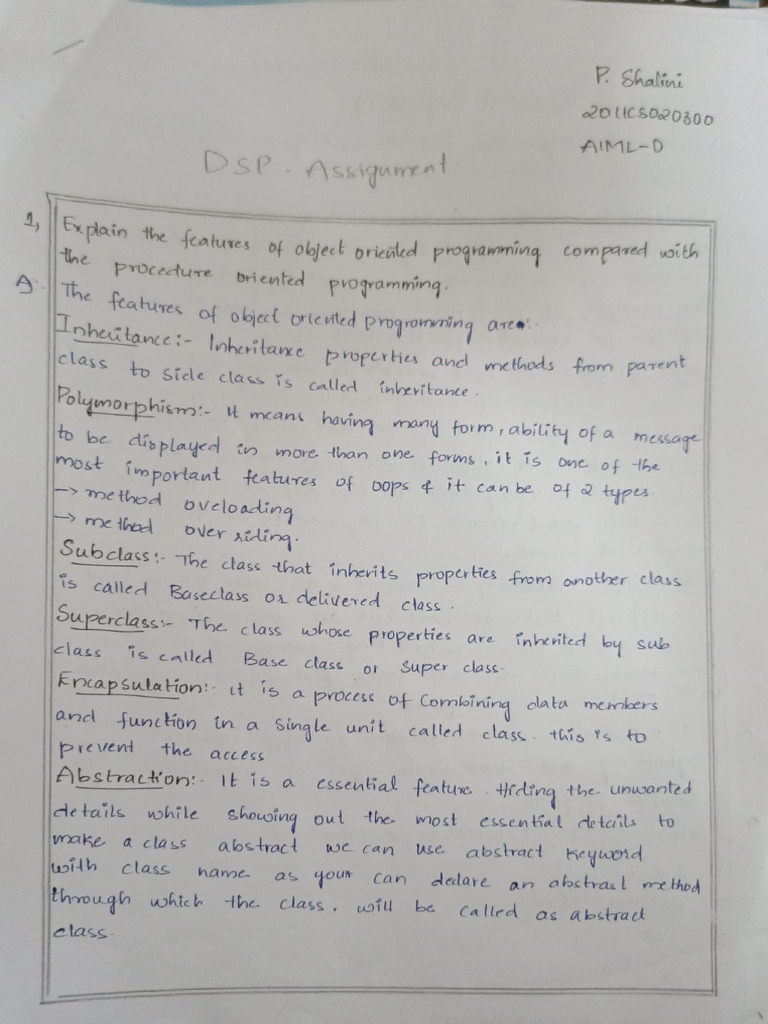 P. Shalini
2011CS020300
AIML-D
DSP. Assignment
1, Explain the features of object oriented programming compared with
the procedure oriented programming.
A:- The features of object oriented programming are:-
Inheritance:- Inheritance properties and methods from parent
class to side class is called inheritance.
Polymorphism:- It means having many form, ability of a message
to be displayed in more than one forms, it is one of the
most important features of oops & it can be of 2 types
→ method oveloading
→ method over riding.
Subclass:- The class that inherits properties from another class
is called Baseclass or delivered class.
Superclass:- The class whose properties are inherited by sub
class is called Base class or super class.
Encapsulation:- it is a process of combining data members
and function in a single unit called class. this is to
prevent the access
Abstraction:- It is a essential feature. Hiding the unwanted
details while showing out the most essential details to
make a class abstract we can use abstract keyword
with class name as your can declare an abstract method
through which the class. will be called as abstract
class.